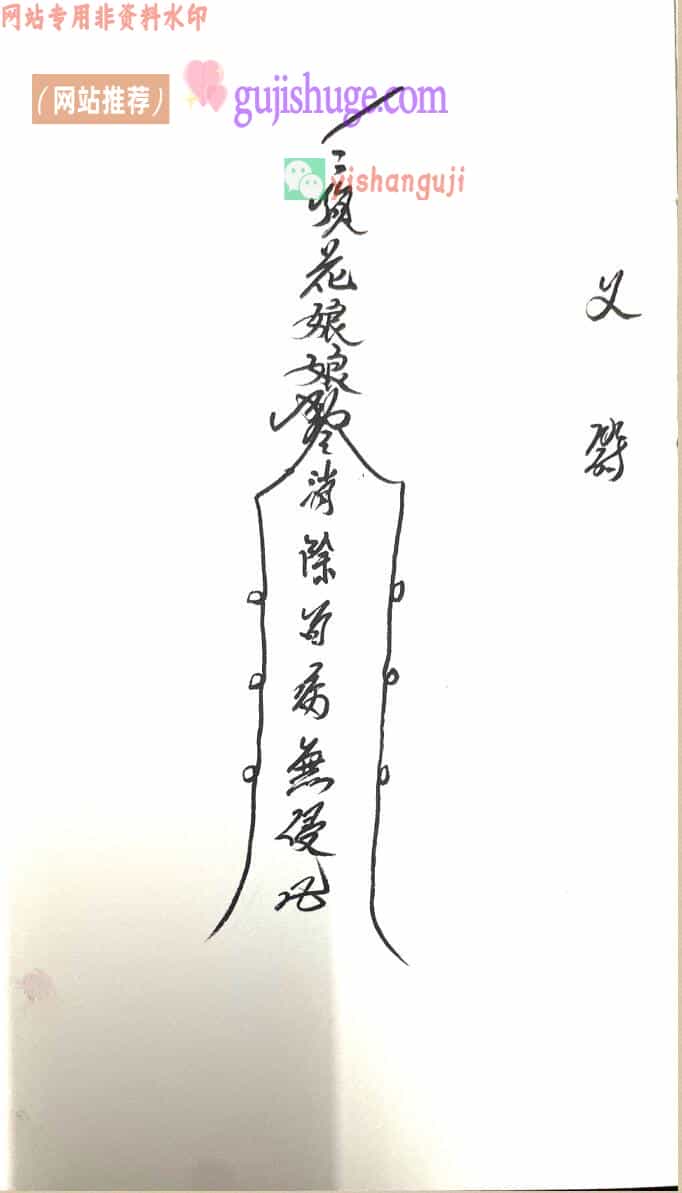 网站专用非资料水印
(网站推荐) gujishuge.com
yishanguji
又
花娘娘
消除百病無侵